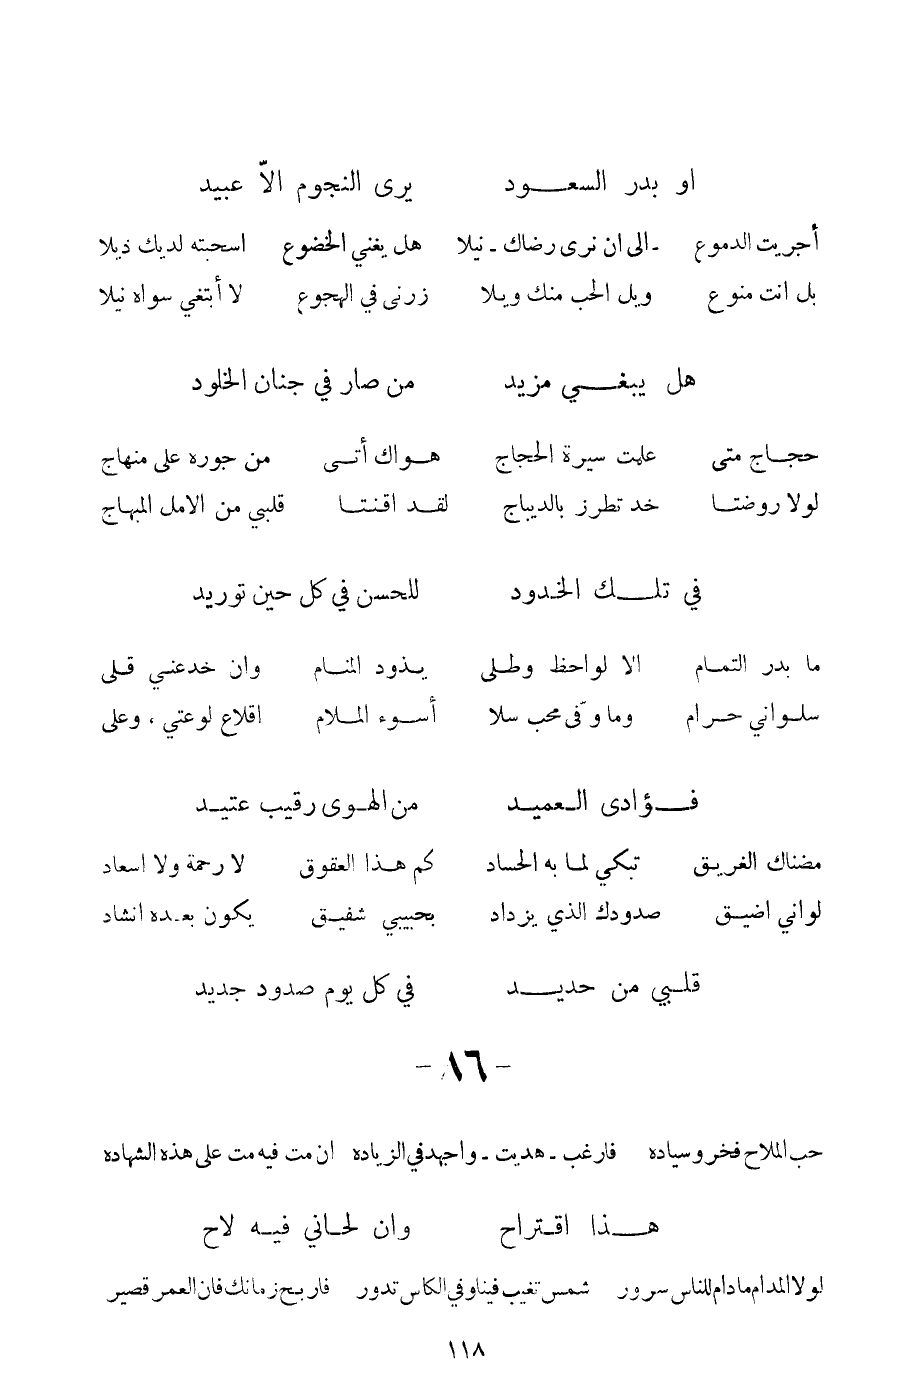 او بدر السعـــود يرى النجوم الاّ عبيد
أجريت الدموع ـ الى ان نرى رضاك ـ نيلا هل يغني الخضوع اسحبته لديك ذيلا
بل انت منوع ويل الحب منك ويلا زرنى في الهجوع لا أبتغي سواه نيلا
هل يبغـــي مزيد من صار في جنان الخلود
حجـاج متى علمت سيرة الحجاج هـواك أتـى من جوره على منهاج
لولا روضتـا خد تطرز بالديباج لقـد اقنتـا قلبي من الامل المبهاج
في تلـــك الخدود للحسن في كل حين توريد
ما بدر التمـام الا لواحظ وطـلى يـذود المنـام وان خدعنـي قـلى
سلـواني حـرام وما وفّى محب سلا أسـوء المـلام اقلاع لوعتي ، وعلى
فـــؤادى العميـد من الهـوى رقيب عتيـد
مضناك الغريـق تبكي لمـا به الحساد كم هـذا العقوق لا رحمة ولا اسعاد
لواني اضيـق صدودك الذي يزداد بحبيبي شفيـق يكون بعـده انشاد
قلـبي من حديـــد في كل يوم صدود جديد
- ٨٦ -
حب الملاح فخر وسياده فارغب ـ هديت ـ واجهد في الزياده ان مت فيه مت على هذه الشهاده
هـــذا اقـتراح وان لحـاني فيـه لاح
لولا المدام مادام للناس سرور شمس تغيب فينا وفي الكاس تدور فاربح زمانك فان العمر قصير
١١٨